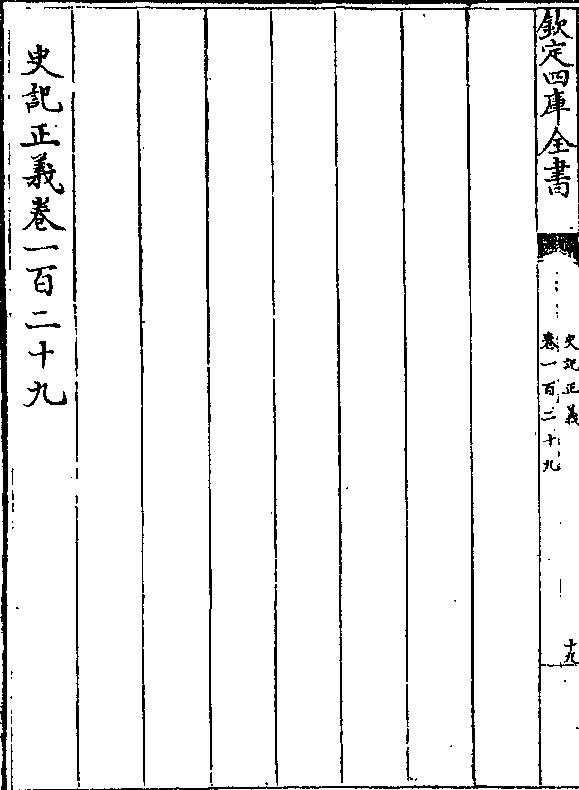 欽定四庫全書
史記正義
卷一百二十九
十九
史記正義卷一百二十九